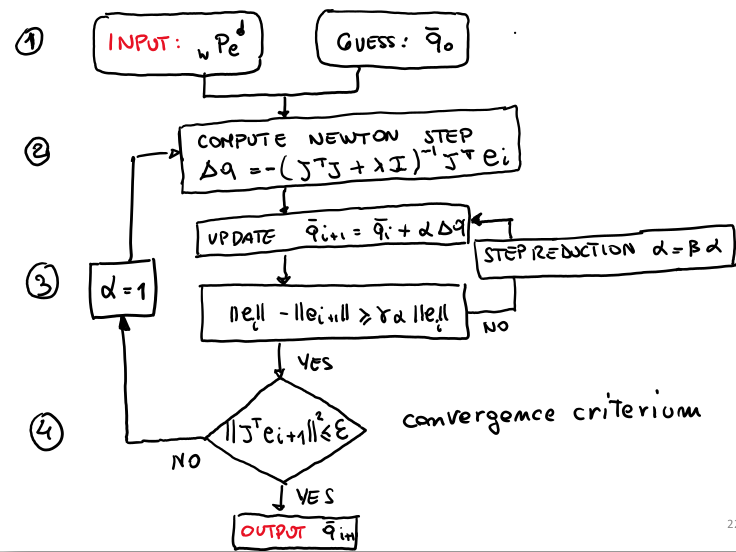 1
INPUT: wPe^d
GUESS: q̄₀
2
COMPUTE NEWTON STEP
Δq = -(JᵀJ + λI)⁻¹ Jᵀ eᵢ
UPDATE q̄ᵢ₊₁ = q̄ᵢ + αΔq
STEP REDUCTION α = βα
3
α = 1
||eᵢ|| - ||eᵢ₊₁|| ≥ γα ||eᵢ||
NO
YES
4
||Jᵀeᵢ₊₁||² ≤ ε
convergence criterium
NO
YES
OUTPUT q̄ᵢ₊₁
22